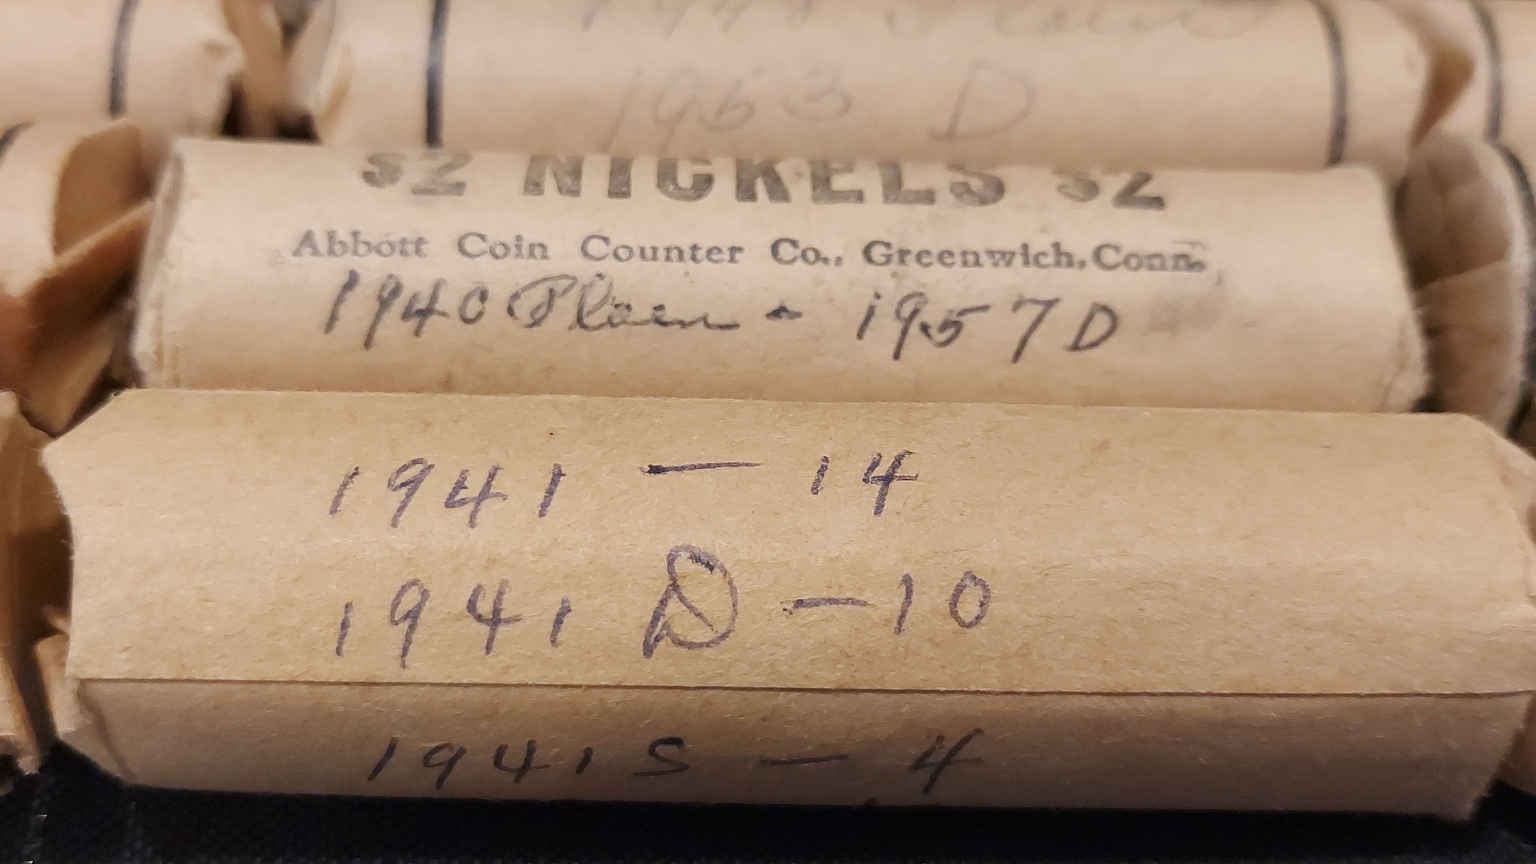 1963 D
$2 NICKELS $2
Abbott Coin Counter Co., Greenwich, Conn.
1940 Plain - 1957 D
1941 — 14
1941 D — 10
1941 S — 4